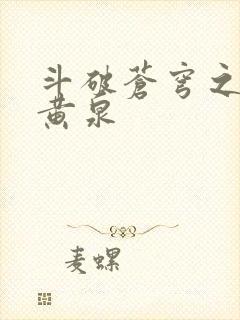 斗破苍穹之
黄泉
麦螺